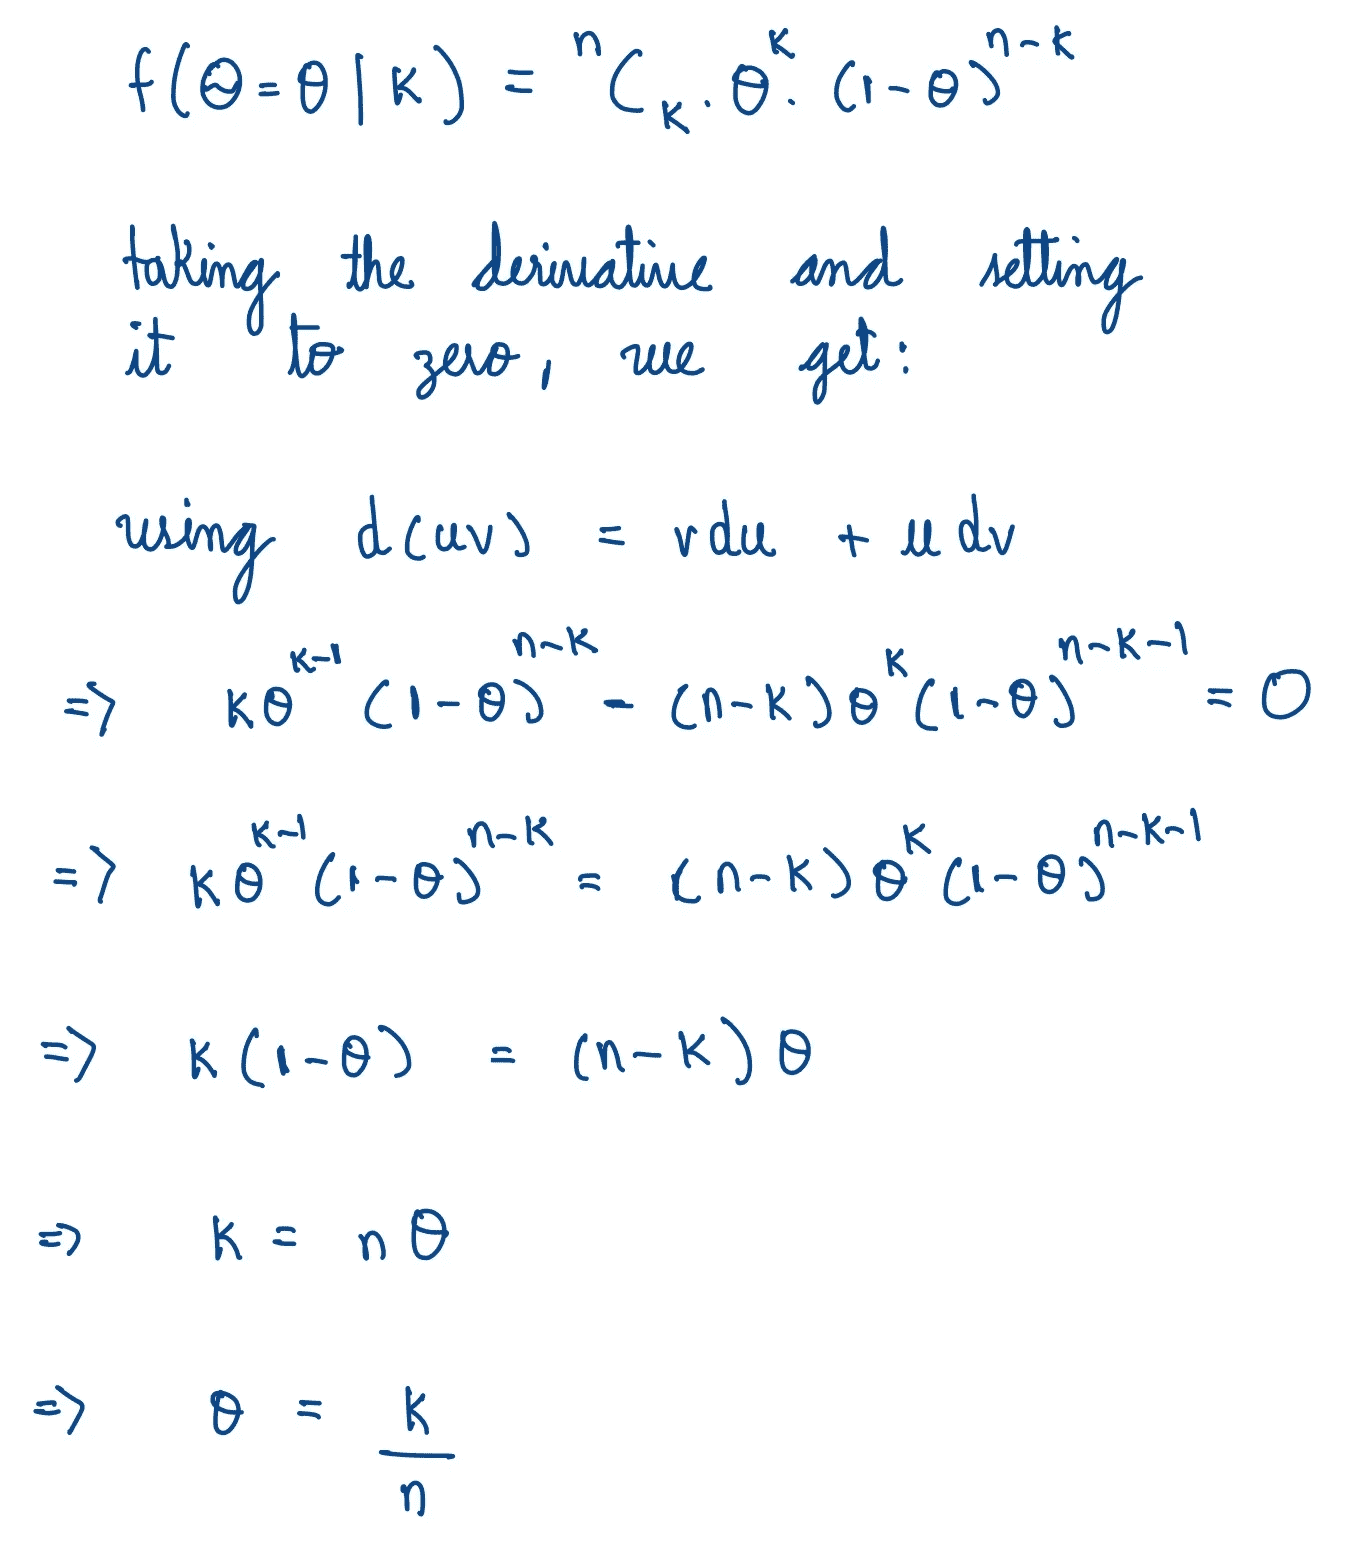 f(Θ=θ|K) = ⁿC_K · θ^K · (1-θ)^(n-K)
taking the derivative and setting
it to zero, we get:
using d(uv) = vdu + udv
=> Kθ^(K-1) (1-θ)^(n-K) - (n-K)θ^K(1-θ)^(n-K-1) = 0
=> Kθ^(K-1)(1-θ)^(n-K) = (n-K)θ^K(1-θ)^(n-K-1)
=> K(1-θ) = (n-K)θ
=> K = nθ
=> θ = K/n